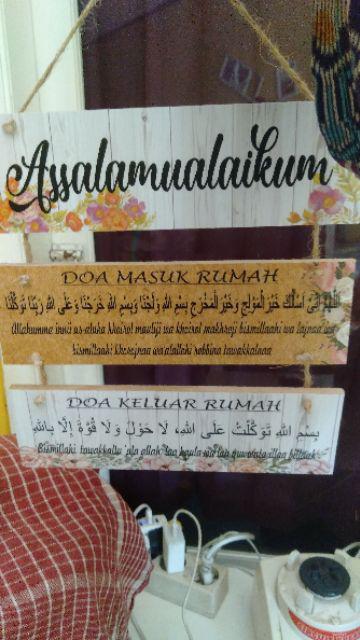 Assalamualaikum
DOA MASUK RUMAH
اَللّٰهُمَّ اِنِّى اَسْأَلُكَ خَيْرَ الْمَوْلِجِ وَخَيْرَ الْمَخْرَجِ بِسْمِ اللهِ وَلَجْنَا وَبِسْمِ اللهِ خَرَجْنَا وَعَلَى اللهِ رَبِّنَا تَوَكَّلْنَا
Allahumma innii as-aluka khoirol mauliji wa khoirol makhraji bismillaahi wa lajnaa wa
bismillaahi khorojnaa wa'alallohi robbina tawakkalnaa
DOA KELUAR RUMAH
بِسْمِ اللهِ تَوَكَّلْتُ عَلَى اللهِ، لَا حَوْلَ وَلَا قُوَّةَ إِلَّا بِاللهِ
Bismillahi tawakkaltu 'ala allah laa haula wa laa quwwata illaa billaah